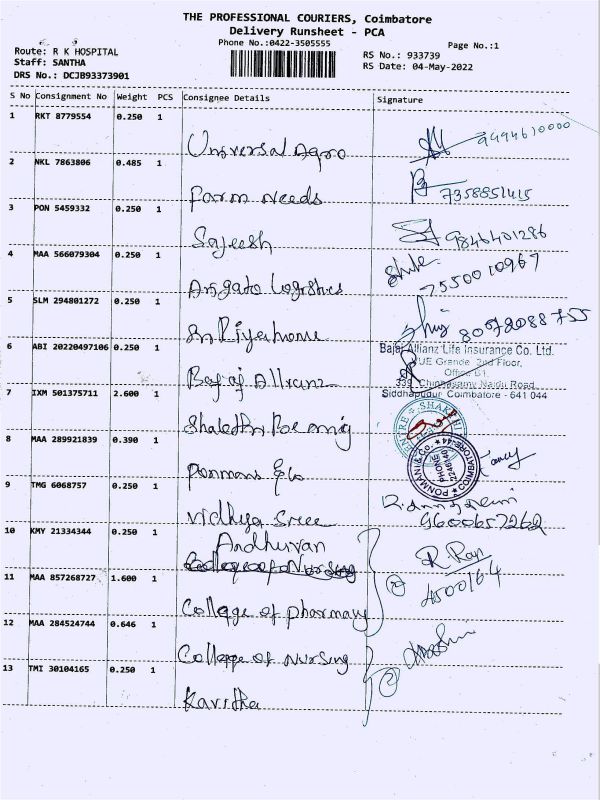 THE PROFESSIONAL COURIERS, Coimbatore
Delivery Runsheet - PCA
Phone No.:0422-3505555
Page No.:1
Route: R K HOSPITAL
Staff: SANTHA
DRS No.: DCJB93373901
RS No.: 933739
RS Date: 04-May-2022
S No Consignment No Weight PCS Consignee Details Signature
1 RKT 8779554 0.250 1
Universal Agro 9494610000
2 NKL 7863806 0.485 1
Farm needs 7358851415
3 PON 5459332 0.250 1
Sajeesh 9846401286
4 MAA 566079304 0.250 1
Arigato Logistics 7550010967
5 SLM 294801272 0.250 1
Sri Priya home 8072088755
6 ABI 20220497106 0.250 1
Bajaj Allianz
Bajaj Allianz Life Insurance Co. Ltd.
VUE Grande 2nd Floor,
Office 01
339, Chinnasamy Naidu Road
Siddhapudur, Coimbatore - 641 044
7 IXM 501375711 2.600 1
Shakthi
8 MAA 289921839 0.390 1
Ponmani & Co
PONMANI & Co. COIMBATORE-44
PHONE
9 TMG 6068757 0.250 1
Vidhya Sree 9600657262
10 KMY 21334344 0.250 1
College of Nursing
11 MAA 857268727 1.600 1
College of pharmacy
12 MAA 284524744 0.646 1
College of Nursing
13 TMI 30104165 0.250 1
Kavitha